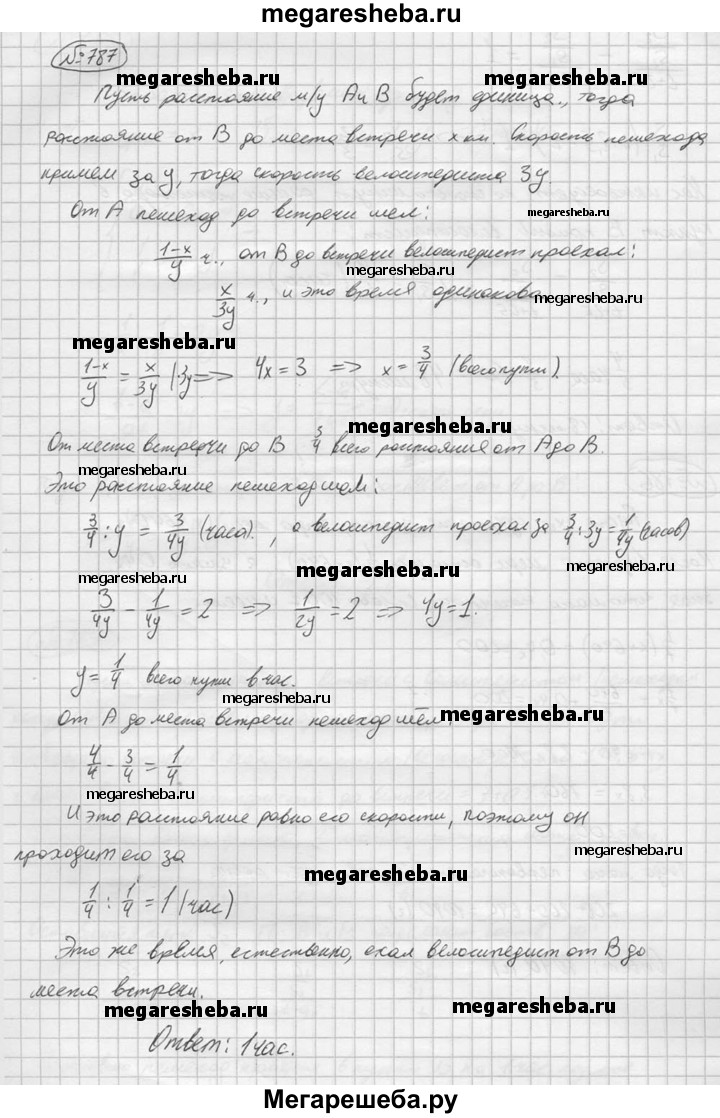 megaresheba.ru
№787
megaresheba.ru megaresheba.ru
Пусть расстояние м/у А и В будет единица, тогда
расстояние от В до места встречи x км. Скорость пешехода
примем за y, тогда скорость велосипедиста 3y.
megaresheba.ru
От А пешеход до встречи шел:
(1-x)/y ч., от В до встречи велосипедист проехал:
megaresheba.ru
x/3y ч., и это время одинаково
megaresheba.ru
megaresheba.ru
(1-x)/y = x/3y |·3y => 4x = 3 => x = 3/4 (всего пути).
megaresheba.ru
От места встречи до В 3/4 всего расстояния от А до В.
megaresheba.ru
Это расстояние пешеход шел:
3/4 : y = 3/4y (часа)., а велосипедист проехал за 3/4 : 3y = 1/4y (часов)
megaresheba.ru
megaresheba.ru
megaresheba.ru
3/4y - 1/4y = 2 => 1/2y = 2 => 4y = 1.
y = 1/4 всего пути в час.
megaresheba.ru
От А до места встречи пешеход шёл:
megaresheba.ru
4/4 - 3/4 = 1/4
megaresheba.ru
И это расстояние равно его скорости, поэтому он
проходит его за
megaresheba.ru
megaresheba.ru
1/4 : 1/4 = 1 (час)
Это же время, естественно, ехал велосипедист от В до
megaresheba.ru
места встречи.
megaresheba.ru megaresheba.ru
Ответ: 1 час.
Мегарешеба.ру